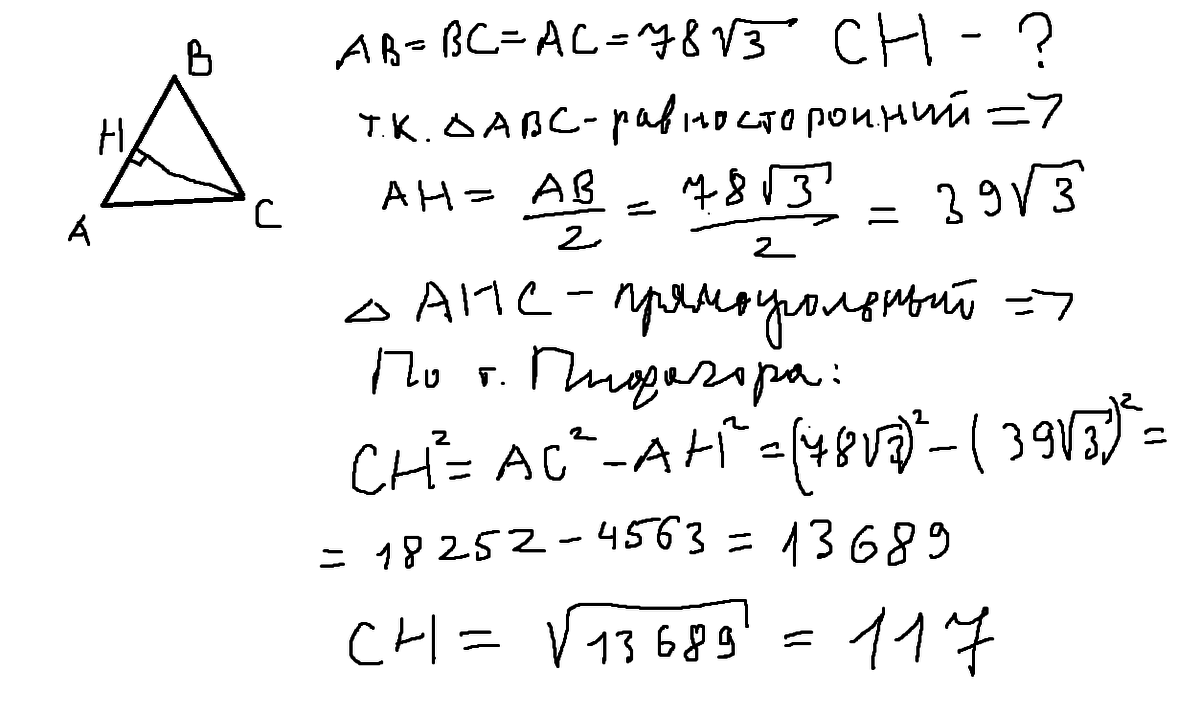 B
H
A
C
AB = BC = AC = 78√3 CH - ?
т.к. △ABC - равносторонний =>
AH = AB/2 = 78√3/2 = 39√3
△ AHC - прямоугольный =>
По т. Пифагора:
CH² = AC² - AH² = (78√3)² - (39√3)² =
= 18252 - 4563 = 13689
CH = √13689 = 117